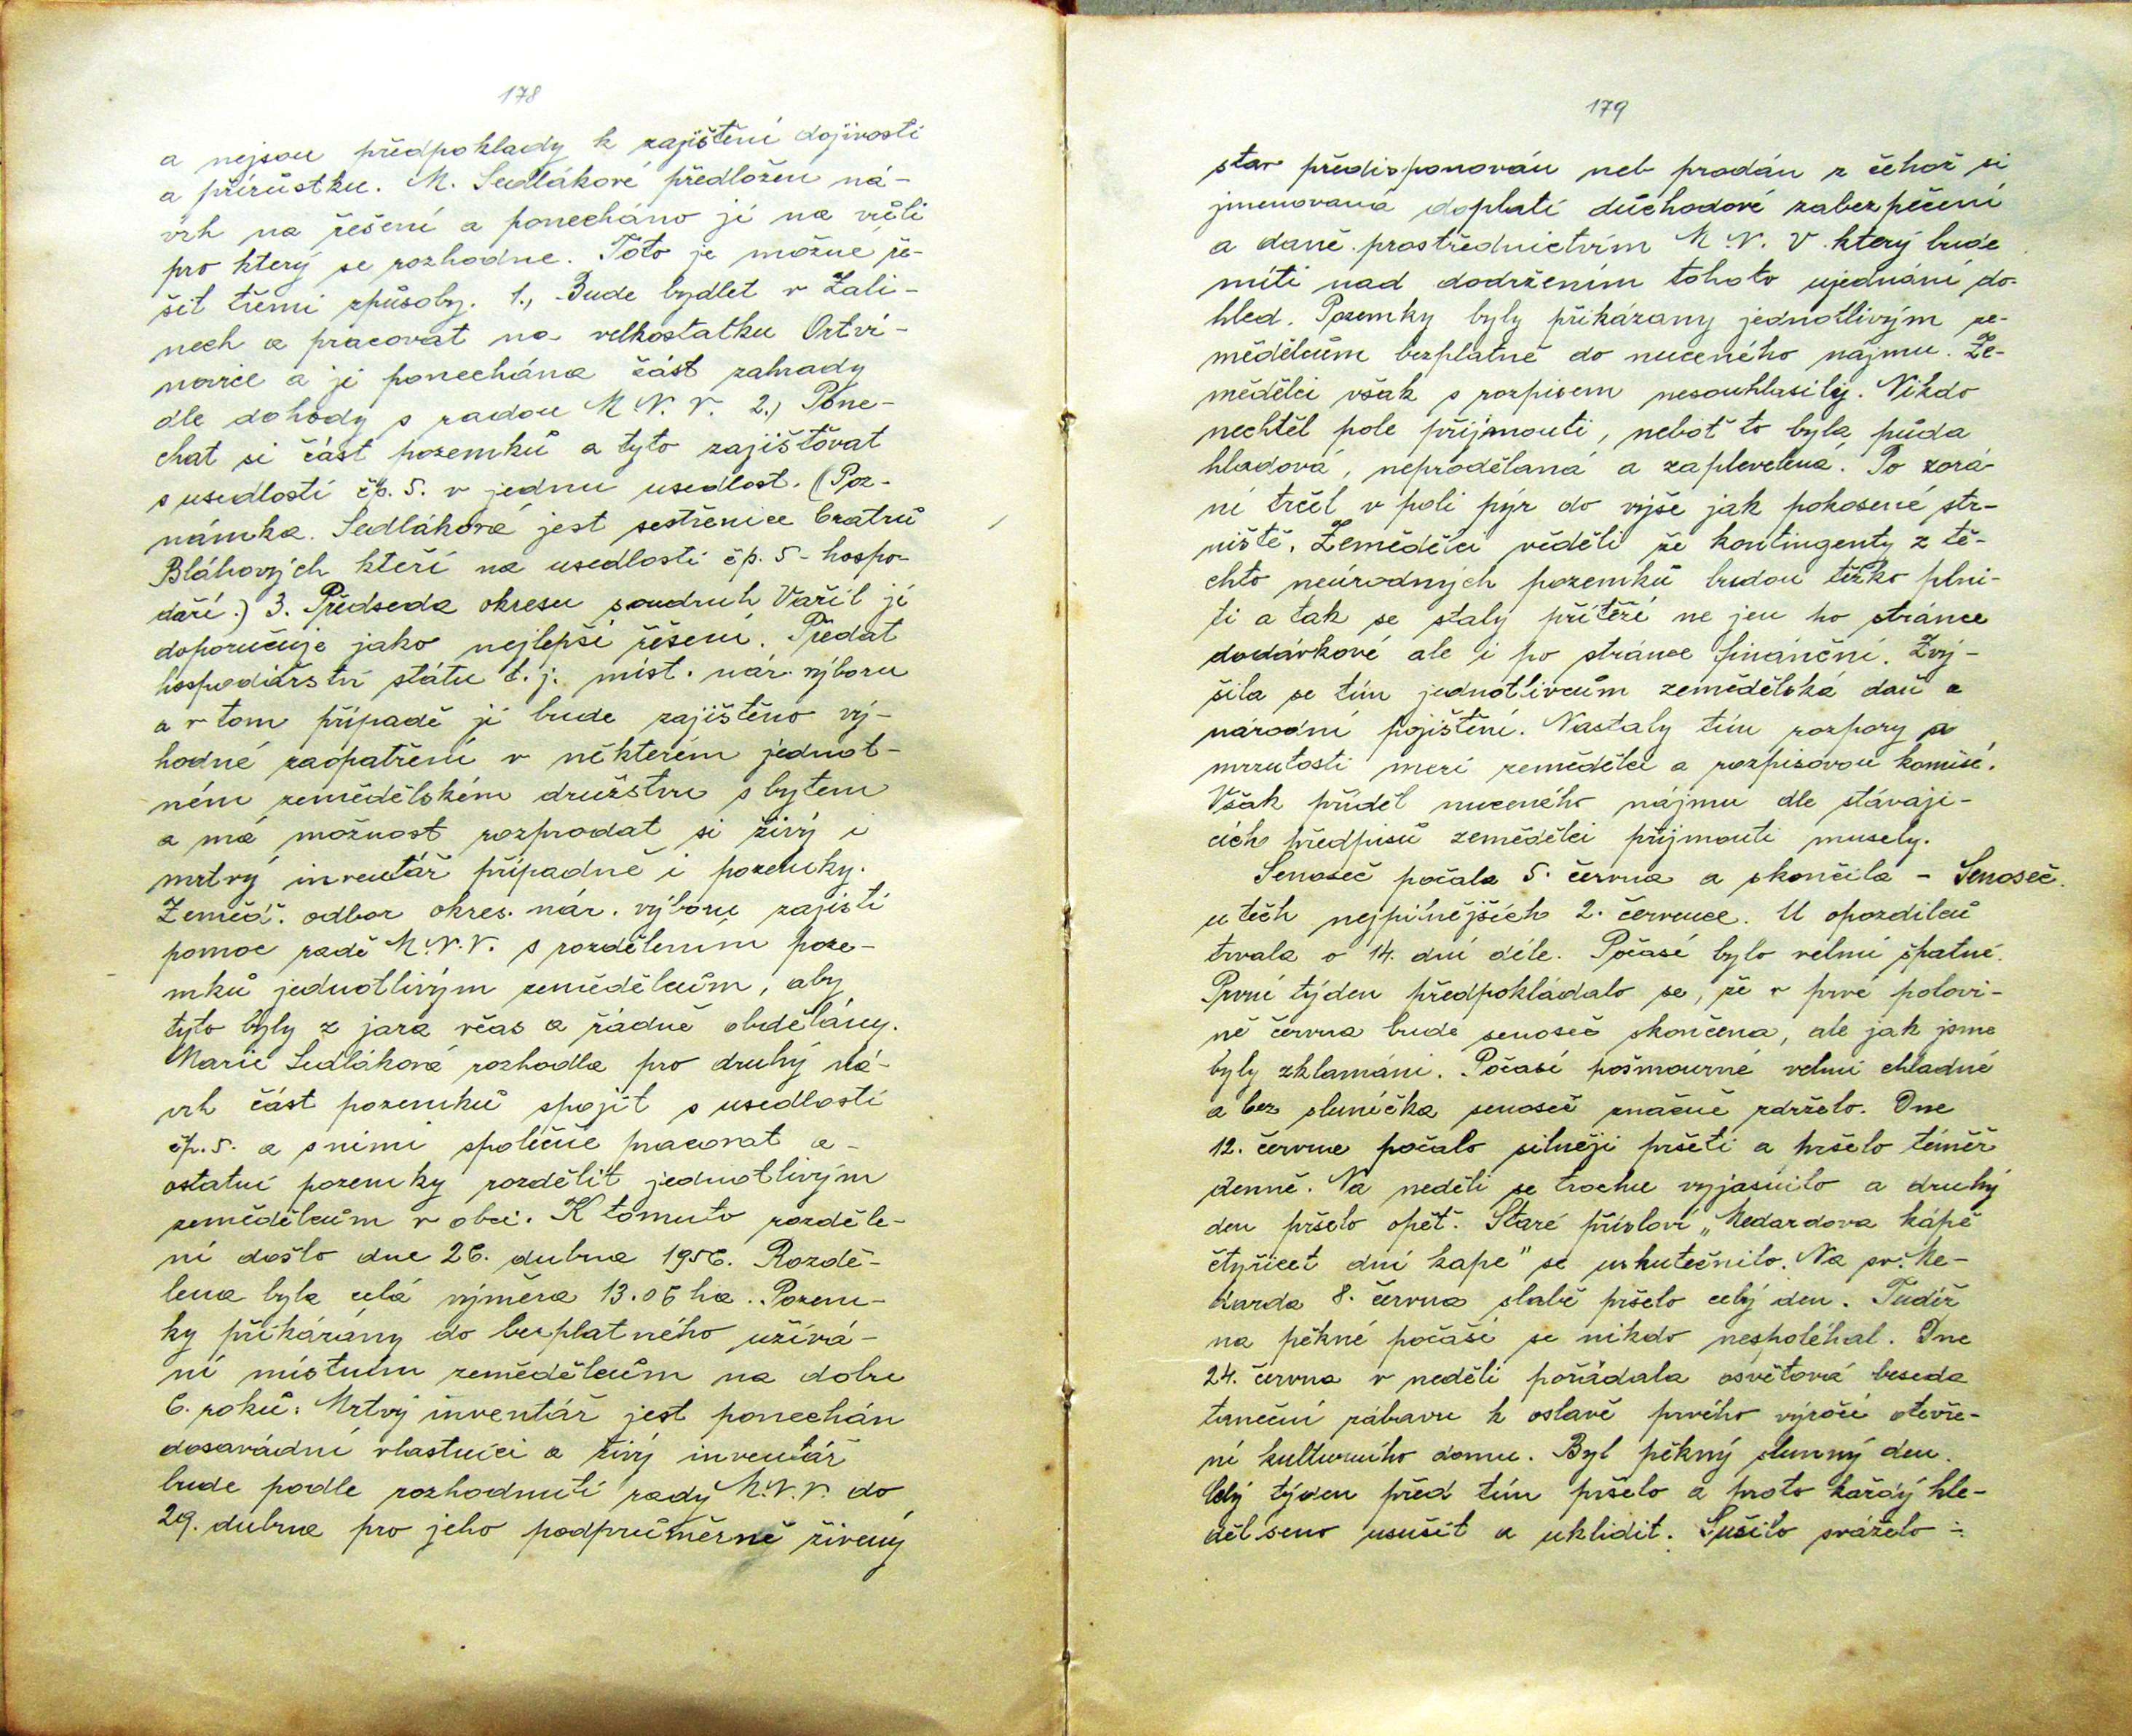 178
a nejsou předpoklady k zajištění dojivosti
a přírůstku. M. Sedlákové předložen ná-
vrh na řešení a ponecháno jí na vůli
pro který se rozhodne. Toto je možné ře-
šit třemi způsoby. 1., Bude bydlet v Žali-
nech a pracovat na velkostatku Ortvi-
novice a jí ponechána část zahrady
dle dohody s radou M N. V. 2., Pone-
chat si část pozemků a tyto zajišťovat
s usedlostí čp. 5. v jednu usedlost. (Poz-
námka. Sedláková jest sestřenice bratrů
Bláhových kteří na usedlosti čp. 5 - hospo-
daří.) 3. Předseda okresu soudruh Vařil jí
doporučuje jako nejlepší řešení. Předat
hospodářství státu t. j. míst. nár. výboru
a v tom případě jí bude zajištěno vý-
hodné zaopatření v některém jednot-
ném zemědělském družstvu s bytem
a má možnost rozprodat si živý i
mrtvý inventář případně i pozemky.
Zeměd. odbor okres. nár. výboru zajistí
pomoc radě M.N.V. s rozdělením poze-
mků jednotlivým zemědělcům, aby
tyto byly z jara včas a řádně obdělány.
Marie Sedláková rozhodla pro druhý ná-
vrh část pozemků spojit s usedlostí
čp. 5. a s nimi společně pracovat a -
ostatní pozemky rozdělit jednotlivým
zemědělcům v obci. K tomuto rozděle-
ní došlo dne 26. dubna 1956. Rozdě-
lena byla celá výměra 13.06 ha. Pozem-
ky přikázány do bezplatného užívá-
ní místním zemědělcům na dobu
6. roků. Mrtvý inventář jest ponechán
dosavádní vlastnici a živý inventář
bude podle rozhodnutí rady M.N.V. do
29. dubna pro jeho podprůměrně živený
179
stav předisponován neb prodán z čehož si
jmenovaná doplatí důchodové zabezpečení
a daně prostřednictvím M.N.V. který bude
míti nad dodržením tohoto ujednání do-
hled. Pozemky byly přikázany jednotlivým ze-
mědělcům bezplatně do nuceného nájmu. Ze-
mědělci však s rozpisem nesouhlasily. Nikdo
nechtěl pole přijmouti, neboť to byla půda
hladová, neprodělaná a zaplevelená. Po zorá-
ní trčel v poli pýr do výše jak pokosené str-
niště. Zemědělci věděli že kontingenty z tě-
chto neúrodných pozemků budou těžko plni-
ti a tak se staly přítěží ne jen po stránce
dodávkové ale i po stránce finánční. Zvý-
šila se tím jednotlivcům zemědělská daň a
národní pojištění. Nastaly tím rozpory a
mrzutosti mezi zemědělci a rozpisovou komisí.
Však příděl nuceného nájmu dle stávají-
cích předpisů zemědělci přijmouti musely.
Senoseč počala 5. června a skončila - Senoseč.
u těch nejpilnějších 2. července. U opozdilců
trvala o 14. dní déle. Počasí bylo velmi špatné.
První týden předpokládalo se, že v prvé polovi-
ně června bude senoseč skončena, ale jak jsme
byly zklamáni. Počasí pošmourné velmi chladné
a bez sluníčka senoseč značně zdrželo. Dne
12. června počalo silněji pršeti a pršelo téměř
denně. Na neděli se trochu vyjasnilo a druhý
den pršelo opět. Staré přísloví „Medardova kápě
čtyřicet dní kape" se uskutečnilo. Na sv. Me-
darda 8. června slabě pršelo celý den. Tudíž
na pěkné počasí se nikdo nespoléhal. Dne
24. června v neděli pořádala osvětová beseda
taneční zábavu k oslavě prvého výročí otevře-
ní kulturního domu. Byl pěkný slunný den.
Celý týden před tím pršelo a proto každý hle-
děl seno usušit a uklidit. Sušilo sváželo -